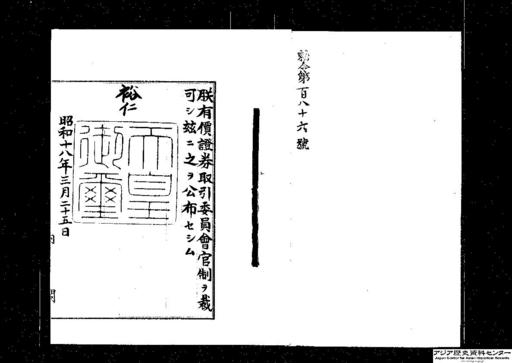 勅令第百八十六號
朕有價證券取引委員會官制ヲ裁
可シ玆ニ之ヲ公布セシム
裕仁
天皇
御璽
昭和十八年三月二十五日
内閣
アジア歴史資料センター
Japan Center for Asian Historical Records